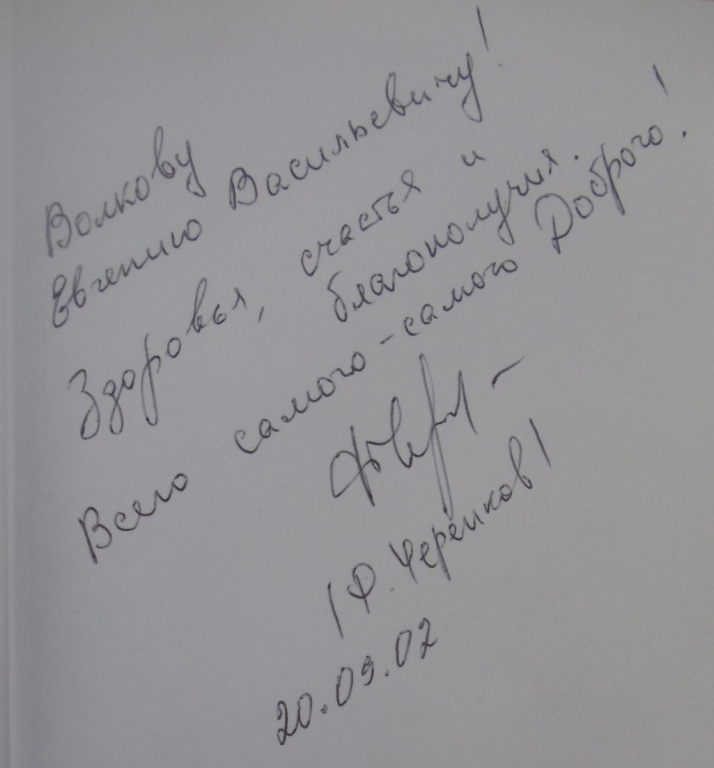 Волкову
Евгению Васильевичу!
Здоровья, счастья и
благополучия.
Всего самого-самого Доброго!
/Ф. Черенков/
20.09.02